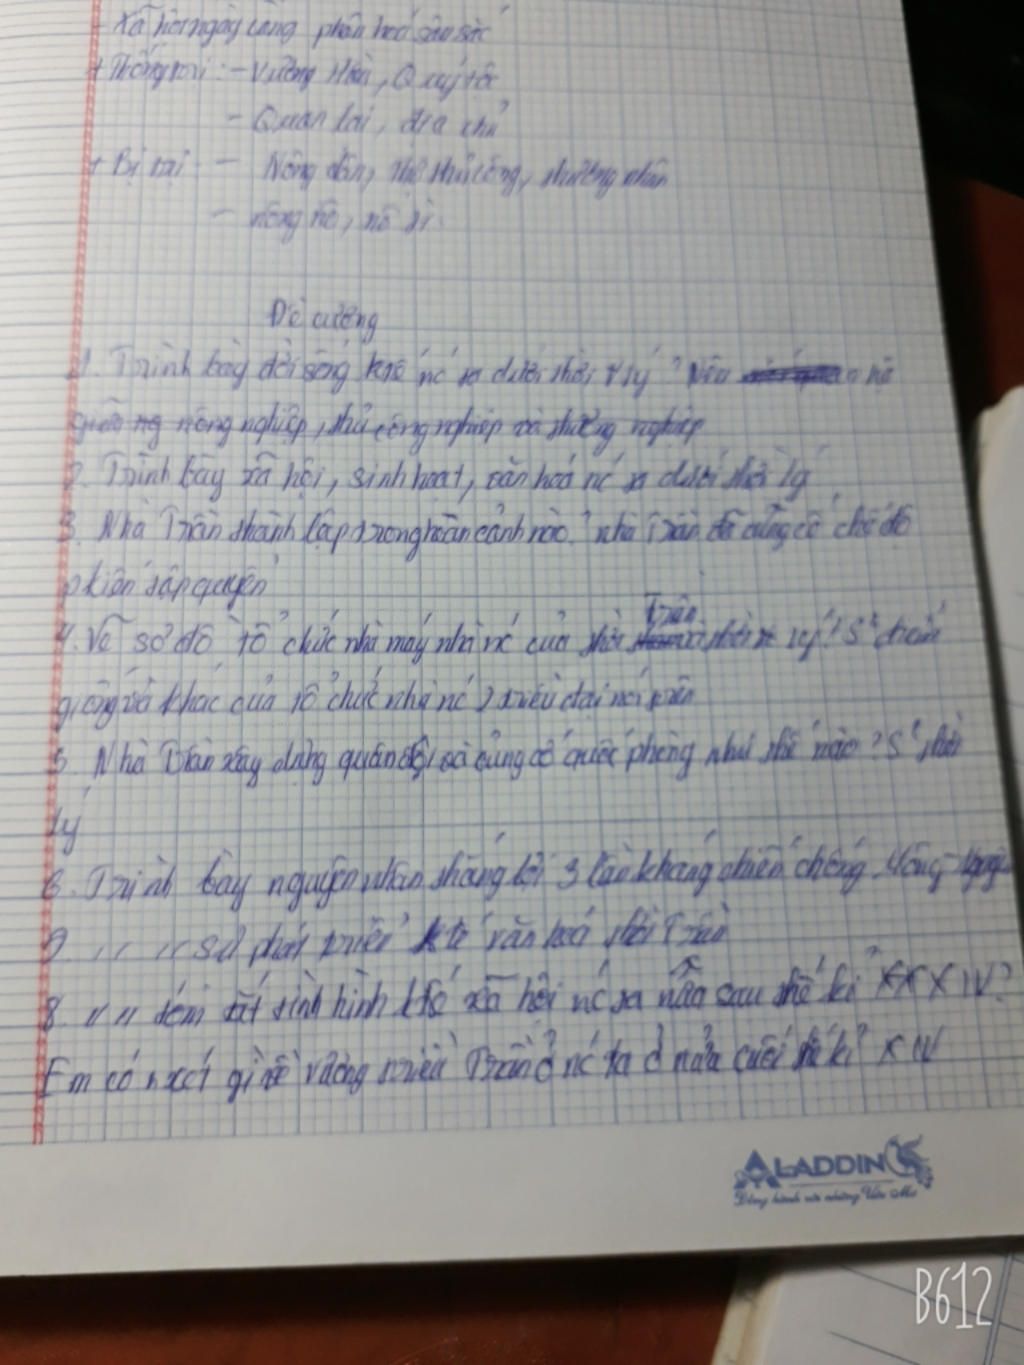 - Xã hội ngày càng phân hoá sâu sắc
+ Thống trị: - Vương Hầu, Quý tộc
- Quan lại, địa chủ
+ Bị trị: - Nông dân, thợ thủ công, thương nhân
- nông nô, nô tì.
Đề cương
1. Trình bày đời sống ktế nc ta dưới thời lý? Nêu
nông nghiệp, thủ công nghiệp và thương nghiệp
2. Trình bày xã hội, sinh hoạt, văn hoá nc ta dưới thời lý
3. Nhà Trần thành lập trong hoàn cảnh nào? nhà Trần đã củng cố chế độ
p kiến tập quyền
4. Vẽ sơ đồ tổ chức nhà máy nhà nc của thời Trần thời lý? S² điểm
giống và khác của tổ chức nhà nc 2 triều đại nói trên
5. Nhà Trần xây dựng quân đội và củng cố quốc phòng như thế nào? S² thời
lý
6. Trình bày nguyên nhân thắng lợi 3 lần kháng chiến chống Mông-Nguyên
" " sự phát triển ktế văn hoá thời Trần
8. " " tóm tắt tình hình ktế xã hội nc ta nữa sau thế kỉ XIV?
Em có nxét gì về vương triều Trần ở nc ta ở nửa cuối thế kỉ XIV
ALADDIN
Đồng hành với những Ước Mơ
B612